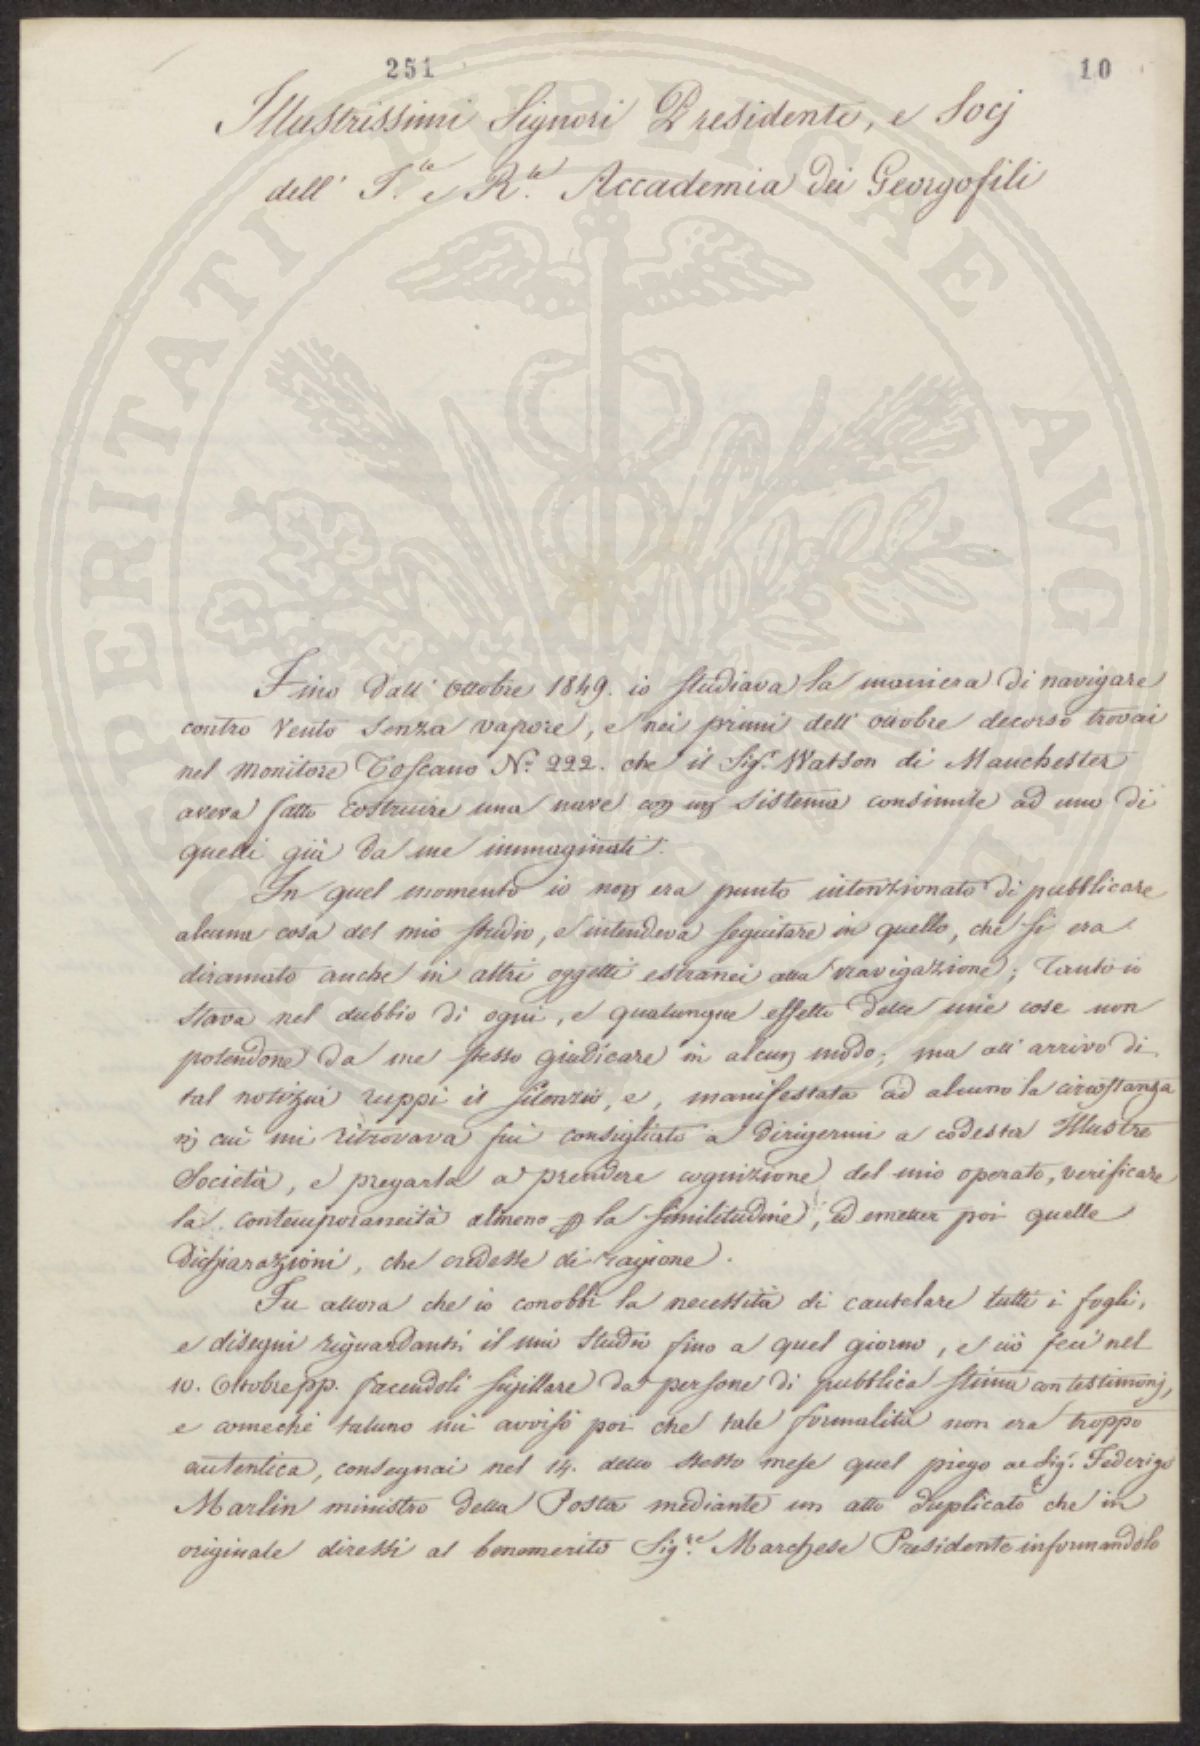 251
10
Illustrissimi Signori Presidente, e Socj
dell' I.le e R.le Accademia dei Georgofili
Fino dall' Ottobre 1849. io studiava la maniera di navigare
contro vento senza vapore, e nei primi dell' ottobre decorso trovai
nel Monitore Toscano N.o 222. che il Sig.r Watson di Manchester
aveva fatto costruire una nave con un sistema consimile ad uno di
quelli già da me immaginati.
In quel momento io non era punto intenzionato di pubblicare
alcuna cosa del mio studio, e intendeva seguitare in quello, che si era
diramato anche in altri oggetti estranei alla navigazione; Tanto io
stava nel dubbio di ogni, e qualunque effetto delle mie cose non
potendone da me stesso giudicare in alcun modo; ma all' arrivo di
tal notizia ruppi il silenzio, e, manifestata ad alcuno la circostanza
in cui mi ritrovava fui consigliato a dirigermi a codesta Illustre
Società, e pregarla a prendere cognizione del mio operato, verificare
la contemporaneità almeno la similitudine, ed emetter poi quelle
dichiarazioni, che credesse di ragione.
Fu allora che io conobbi la necessità di cautelare tutti i fogli,
e disegni riguardanti il mio studio fino a quel giorno, e ciò feci nel
10. Ottobre pp. facendoli sigillare da persone di pubblica stima con testimonj,
e comechè taluno mi avvisò poi che tale formalità non era troppo
autentica, consegnai nel 14. dello stesso mese quel piego al Sig.r Federigo
Marlin ministro della Posta mediante un atto duplicato che in
originale diressi al benemerito Sig.re Marchese Presidente informandolo
PROSPERITATI PUBLICAE AVGENDAE